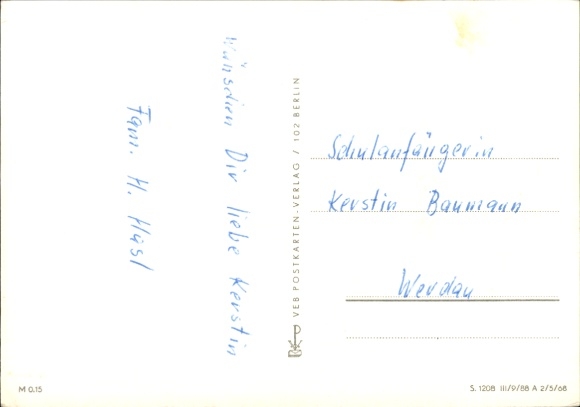 Wünschen Dir liebe Kerstin
Fam. H. Häsl
VEB POSTKARTEN-VERLAG / 102 BERLIN
Schulanfängerin
Kerstin Baumann
Werdau
M 0.15
S. 1208 III/9/88 A 2/5/68